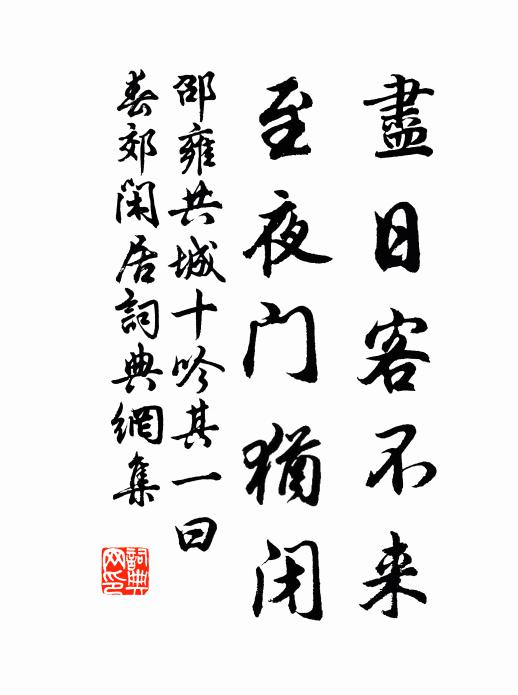 盡日客不来
至夜门猶闭
邵雍共城十吟其一曰
春郊闲居詞典網集
詞典网印